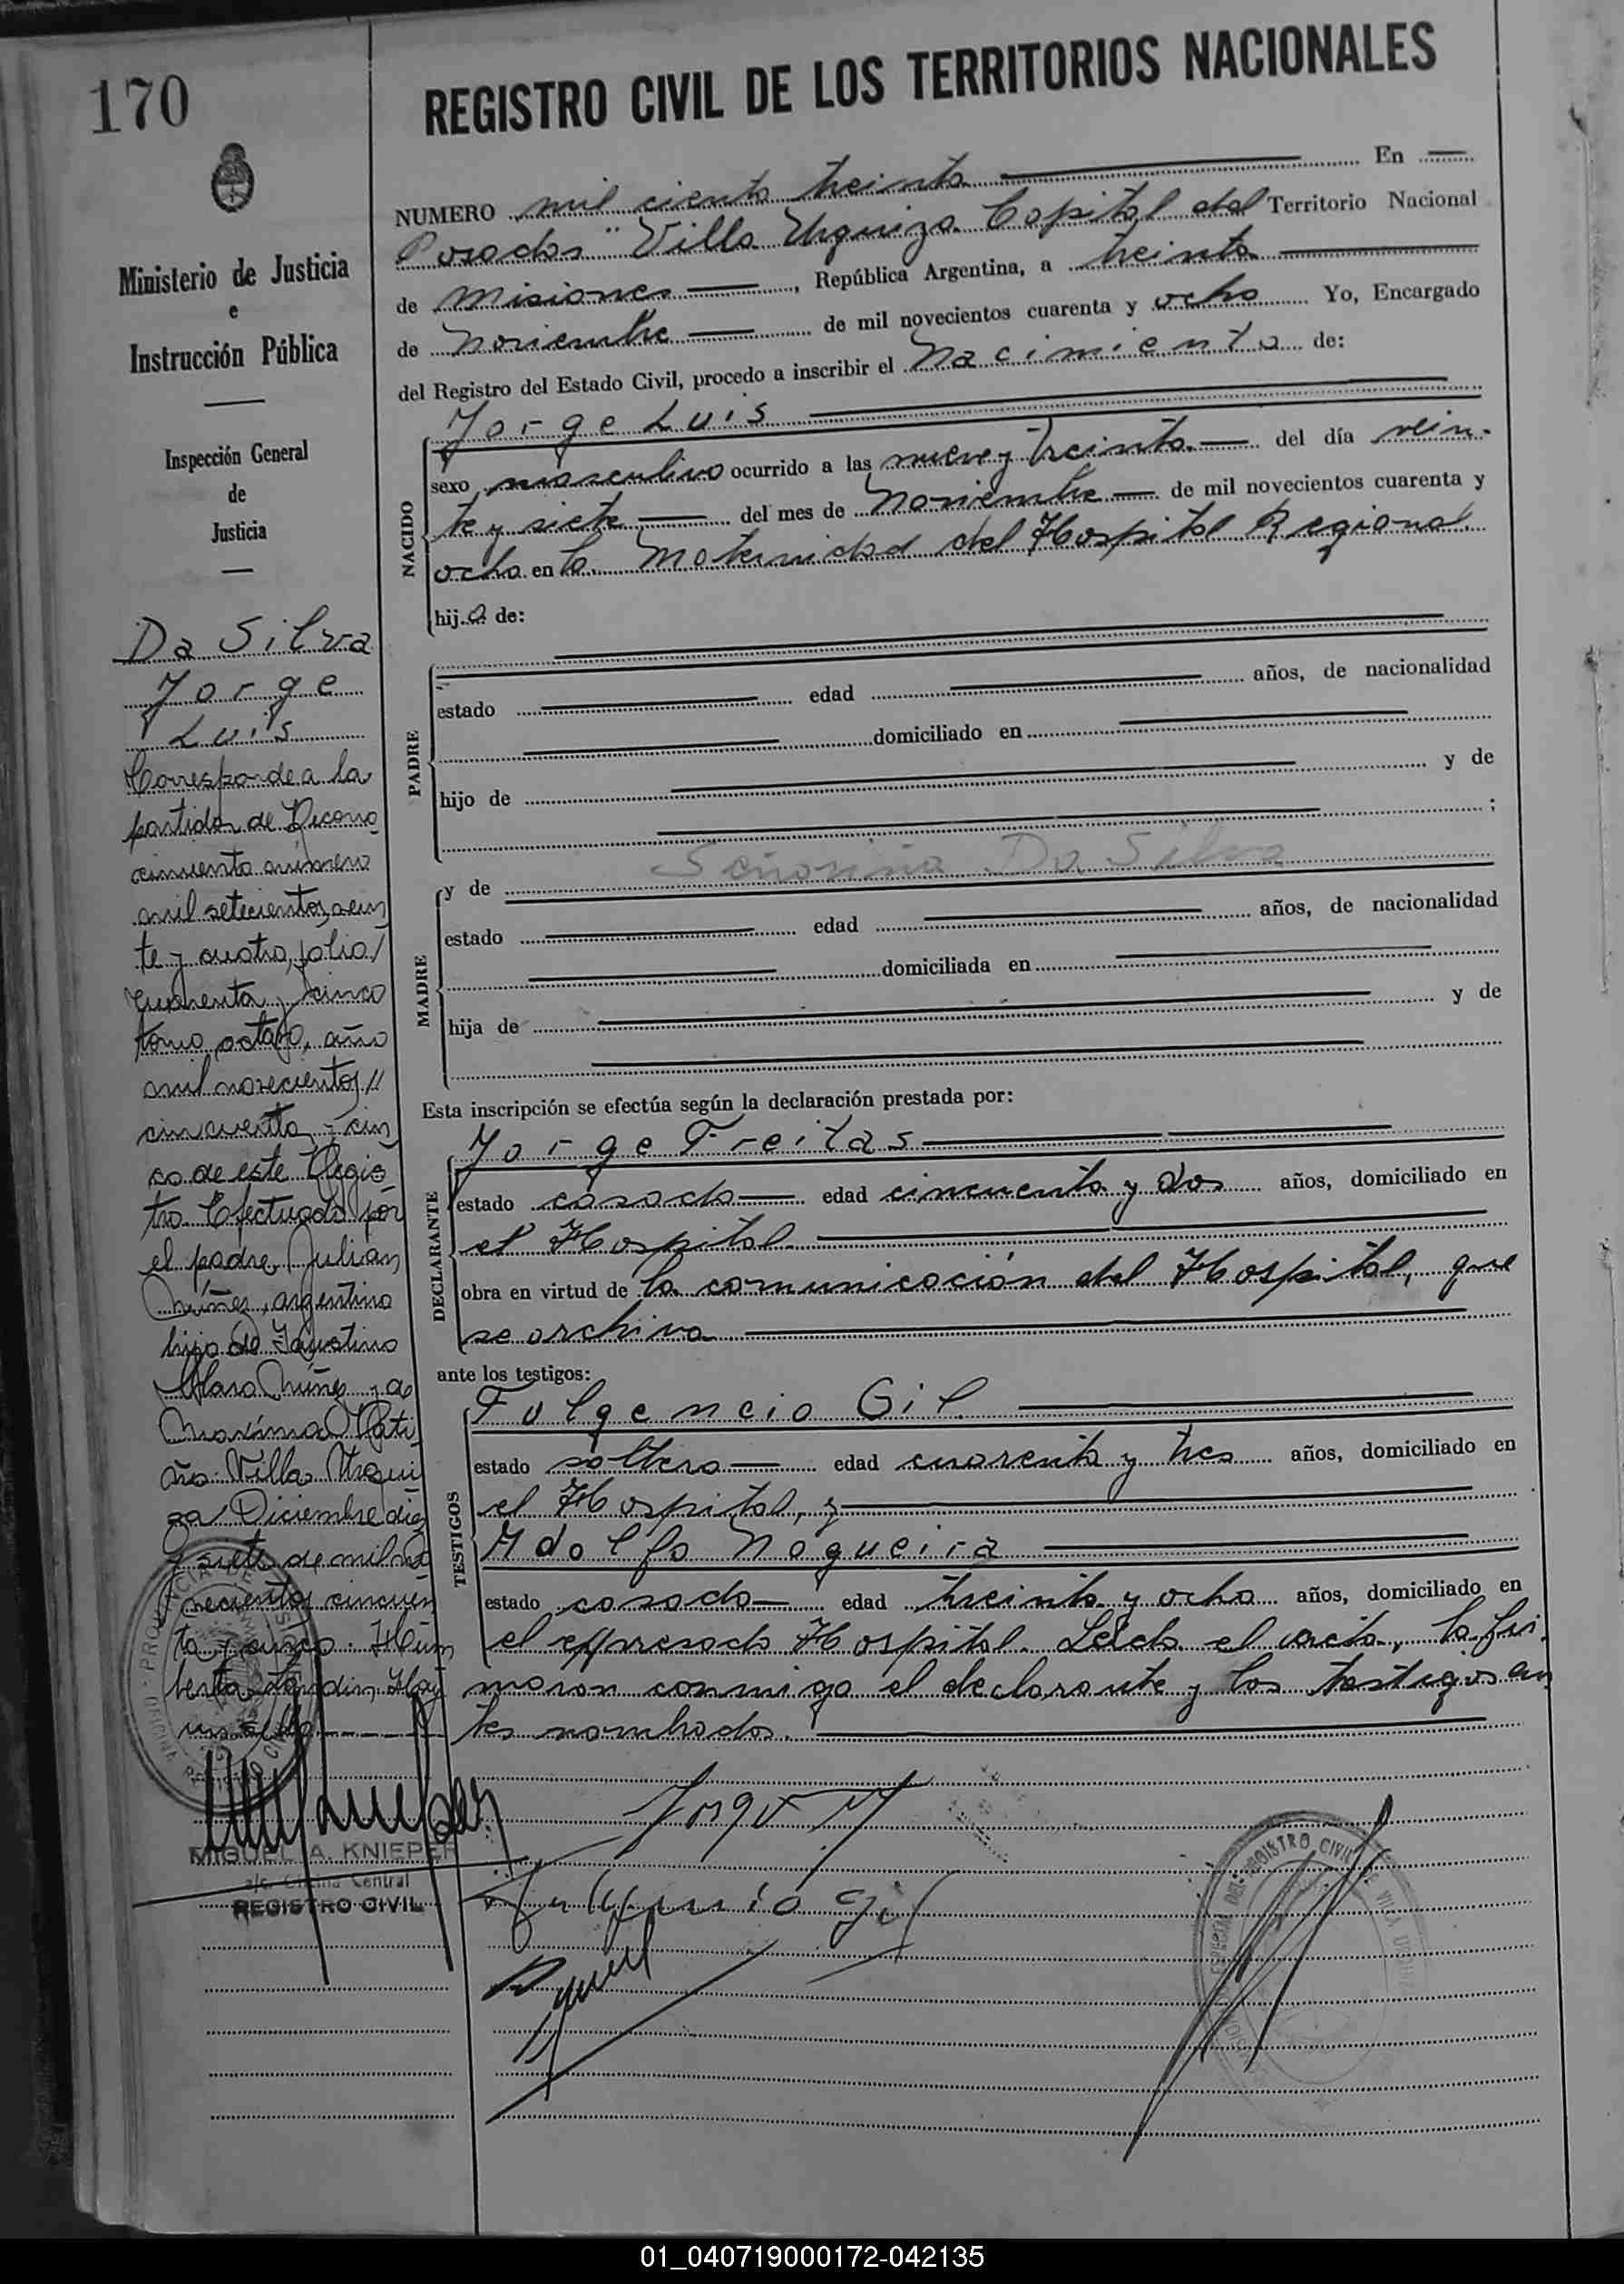 170
REGISTRO CIVIL DE LOS TERRITORIOS NACIONALES
Ministerio de Justicia
e
Instrucción Pública
Inspección General
de
Justicia
NUMERO mil ciento treinta En
Posadas "Villa Urquiza Capital del Territorio Nacional
de Misiones, República Argentina, a treinta
de Noviembre de mil novecientos cuarenta y ocho Yo, Encargado
del Registro del Estado Civil, procedo a inscribir el Nacimiento de:
NACIDO
Jorge Luis
sexo masculino ocurrido a las nueve y treinta del día vein-
te y siete del mes de Noviembre de mil novecientos cuarenta y
ocho en la Maternidad del Hospital Regional
hij.o de:
PADRE
estado edad años, de nacionalidad
domiciliado en
hijo de y de
;
MADRE
y de Señorina Da Silva
estado edad años, de nacionalidad
domiciliada en
hija de y de
Esta inscripción se efectúa según la declaración prestada por:
DECLARANTE
Jorge Freitas
estado casado edad cincuenta y dos años, domiciliado en
el Hospital
obra en virtud de la comunicación del Hospital, que
se archiva
ante los testigos:
TESTIGOS
Fulgencio Gil
estado soltero edad cuarenta y tres años, domiciliado en
el Hospital, y
Adolfo Nogueira
estado casado edad treinta y ocho años, domiciliado en
el expresado Hospital. Leída el acta, la fir-
maron conmigo el declarante y los testigos an
tes nombrados.
Da Silva
Jorge
Luis
Corresponde a la
partida de Recono
cimiento número
mil setecientos vein
te y cuatro, folio/
cuarenta y cinco
tomo octavo, año
mil novecientos//
cincuenta y cin
co de este Regis
tro. Efectuado por
el padre Julián
Núñez, argentino
hijo de Faustino
Núñez y de
Máxima
Villa Urqui
za Diciembre diez
y siete de mil no
vecientos cincuen
ta y cinco. Hum
berto
MIGUEL A. KNIEPER
a/c. Oficina Central
REGISTRO CIVIL
Fulgencio Gil
01_040719000172-042135